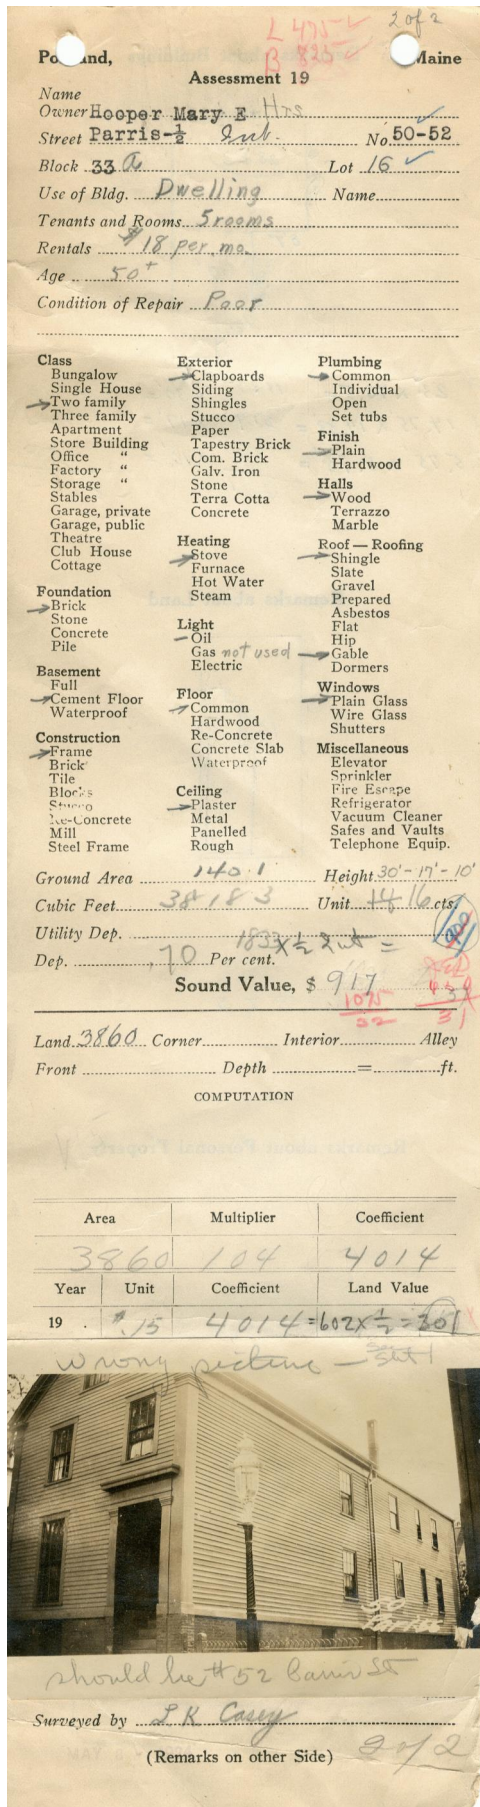 L 475 2 of 2
B 825
Portland, Maine
Assessment 19
Name
Owner Hooper Mary E Hrs
Street Parris-½ Int. No. 50-52
Block 33 a Lot 16
Use of Bldg. Dwelling Name
Tenants and Rooms 5 rooms
Rentals $18 per mo.
Age 50+
Condition of Repair Poor
Class
Bungalow
Single House
Two family
Three family
Apartment
Store Building
Office "
Factory "
Storage "
Stables
Garage, private
Garage, public
Theatre
Club House
Cottage
Foundation
Brick
Stone
Concrete
Pile
Basement
Full
Cement Floor
Waterproof
Construction
Frame
Brick
Tile
Blocks
Stucco
Re-Concrete
Mill
Steel Frame
Exterior
Clapboards
Siding
Shingles
Stucco
Paper
Tapestry Brick
Com. Brick
Galv. Iron
Stone
Terra Cotta
Concrete
Heating
Stove
Furnace
Hot Water
Steam
Light
Oil
Gas not used
Electric
Floor
Common
Hardwood
Re-Concrete
Concrete Slab
Waterproof
Ceiling
Plaster
Metal
Panelled
Rough
Plumbing
Common
Individual
Open
Set tubs
Finish
Plain
Hardwood
Halls
Wood
Terrazzo
Marble
Roof — Roofing
Shingle
Slate
Gravel
Prepared
Asbestos
Flat
Hip
Gable
Dormers
Windows
Plain Glass
Wire Glass
Shutters
Miscellaneous
Elevator
Sprinkler
Fire Escape
Refrigerator
Vacuum Cleaner
Safes and Vaults
Telephone Equip.
Ground Area 1401 Height 30'-17'-10'
Cubic Feet 38183 Unit 14 16 cts.
Utility Dep.
1833 x ½ Int =
Dep. .70 Per cent.
Sound Value, $ 917
1075
22
31
Land 3860 Corner Interior Alley
Front Depth = ft.
COMPUTATION
Area Multiplier Coefficient
3860 104 4014
Year Unit Coefficient Land Value
19 . $.15 4014 =602 x ½ = 301
wrong picture —
should be #52 Parris St
Surveyed by L. K. Casey
(Remarks on other Side) 2 of 2